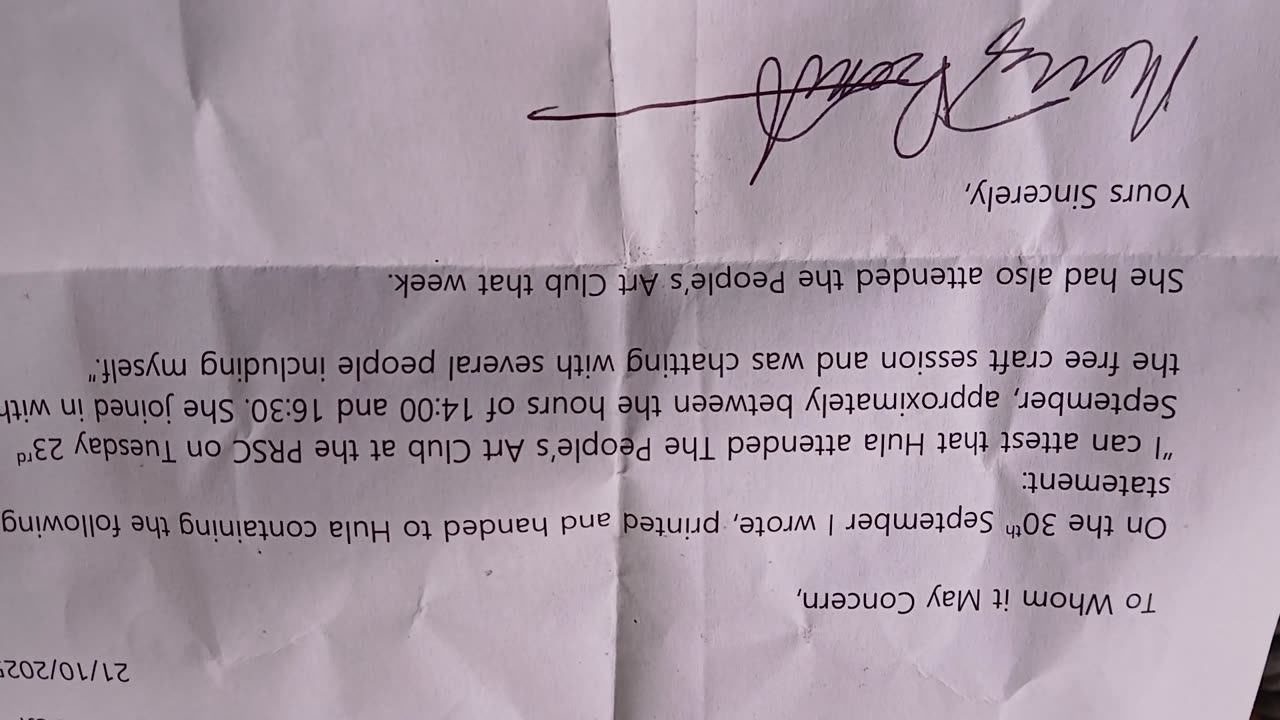 21/10/202
To Whom it May Concern,
On the 30th September I wrote, printed and handed to Hula containing the following
statement:
"I can attest that Hula attended The People's Art Club at the PRSC on Tuesday 23rd
September, approximately between the hours of 14:00 and 16:30. She joined in with
the free craft session and was chatting with several people including myself."
She had also attended the People's Art Club that week.
Yours Sincerely,